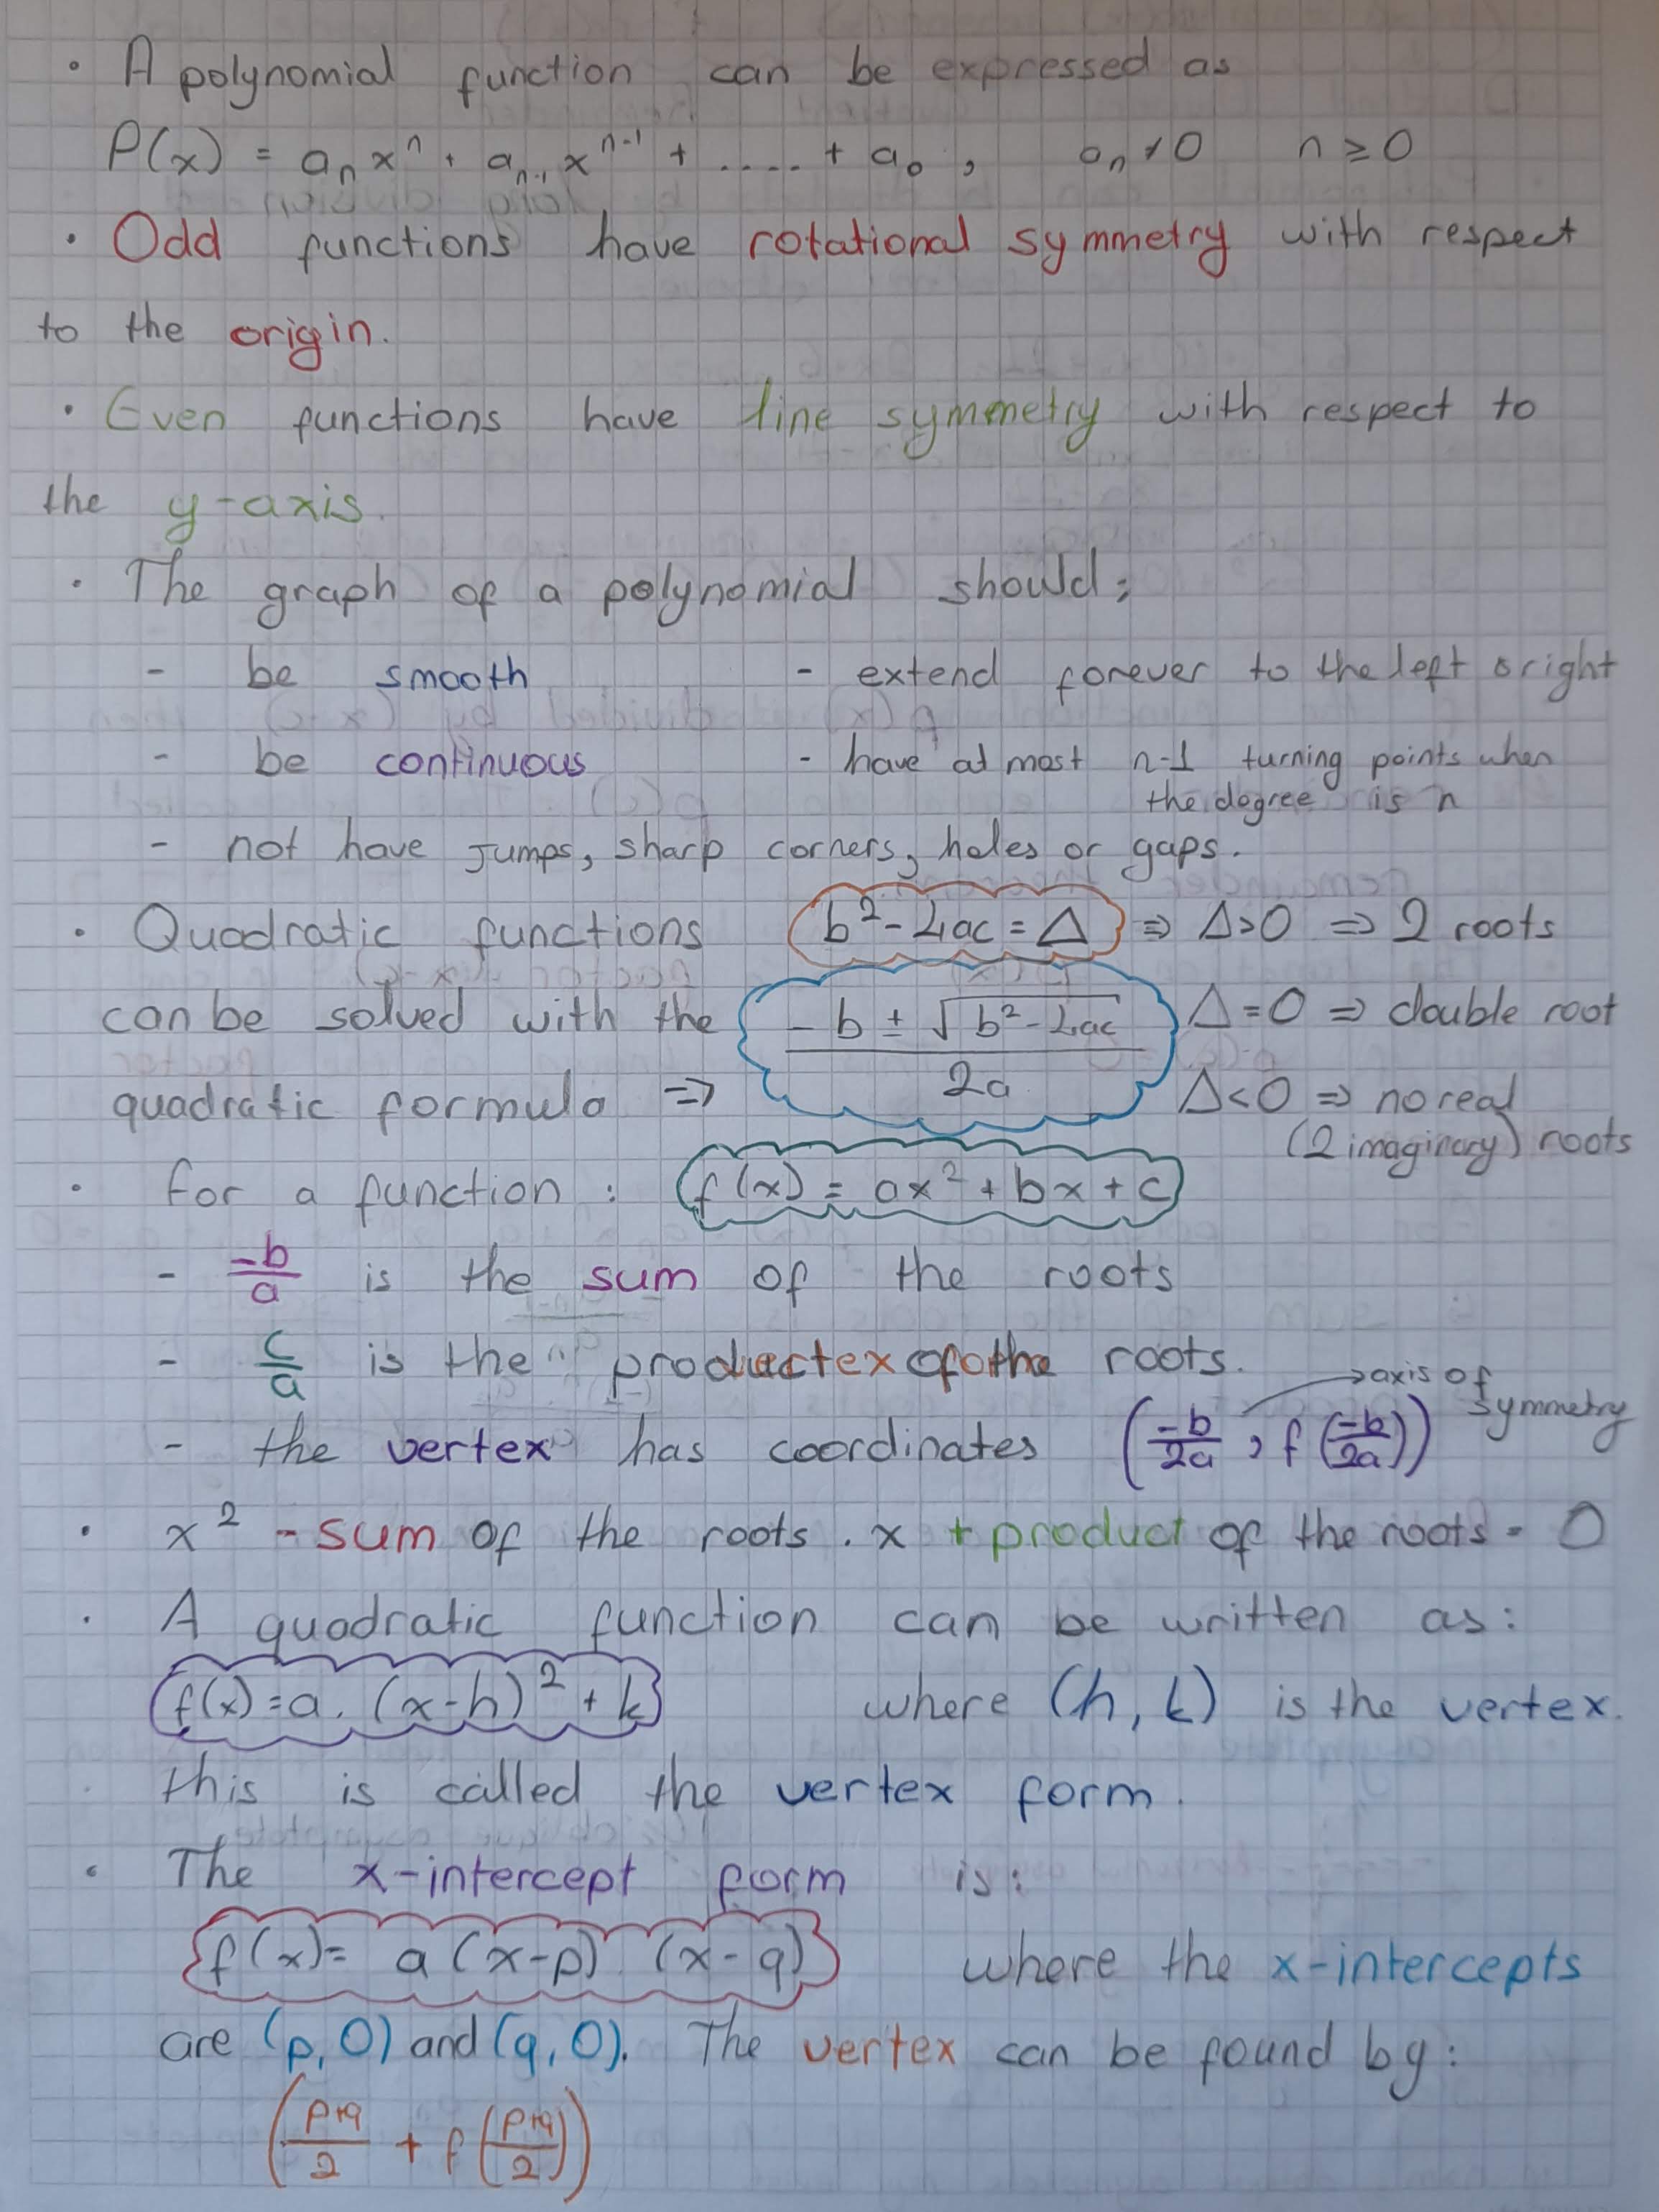 • A polynomial function can be expressed as
P(x) = aₙxⁿ + aₙ₋₁xⁿ⁻¹ + ..... + a₀ , aₙ ≠ 0 n ≥ 0
• Odd functions have rotational symmetry with respect
to the origin.
• Even functions have line symmetry with respect to
the y-axis.
• The graph of a polynomial should;
- be smooth - extend forever to the left & right
- be continuous - have at most n-1 turning points when
the degree is n
- not have jumps, sharp corners, holes or gaps.
• Quadratic functions b² - 4ac = Δ ⇒ Δ>0 ⇒ 2 roots
can be solved with the (-b ± √(b² - 4ac)) / 2a Δ = 0 ⇒ double root
quadratic formula ⇒ Δ<0 ⇒ no real
(2 imaginary) roots
• for a function : f(x) = ax² + bx + c
- -b/a is the sum of the roots
- c/a is the product of the roots.
→ axis of
symmetry
- the vertex has coordinates (-b/2a , f(-b/2a))
• x² - sum of the roots . x + product of the roots = 0
• A quadratic function can be written as:
f(x) = a. (x-h)² + k where (h, k) is the vertex.
this is called the vertex form.
• The x-intercept form is:
f(x) = a (x-p) . (x-q) where the x-intercepts
are (p, 0) and (q, 0). The vertex can be found by:
((p+q)/2 + f((p+q)/2))